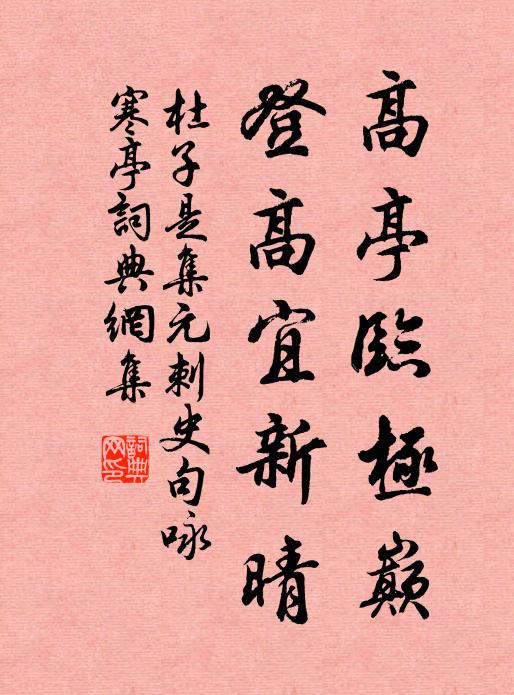 高亭臨極巔
登高宜新晴
杜子是集元刺史句咏
寒亭詞典網集
詞典網印